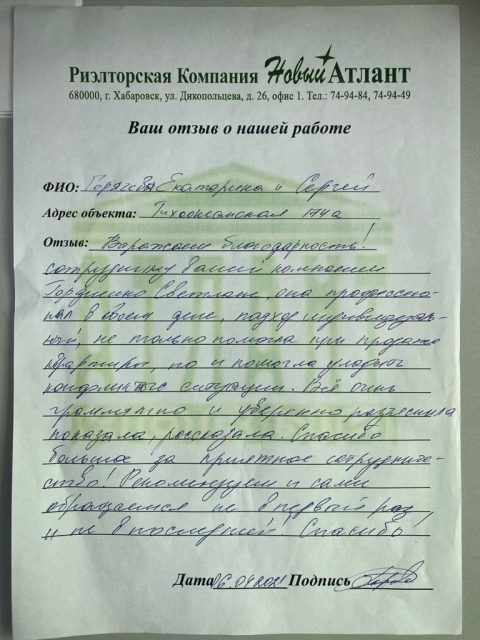 Риэлторская Компания Новый Атлант
680000, г. Хабаровск, ул. Дикопольцева, д. 26, офис 1. Тел.: 74-94-84, 74-94-49
Ваш отзыв о нашей работе
ФИО: Екатерина и Сергей
Адрес объекта: Тихоокеанская 174а
Отзыв: Выражаем благодарность!
сотруднику вашей компании
Гордиенко Светлане, она профессио-
нал в своем деле, подход индивидуаль-
ный, не только помогла при продаже
квартиры, но и помогла уладить
конфликтные ситуации. Всё очень
грамматно и уверенно разъяснила
показала, рассказала. Спасибо
большое за приятное сотрудниче-
ство! Рекомендуем и сами
обращаемся не в первый раз,
и не в последний. Спасибо!
Дата 06.04.2021 Подпись